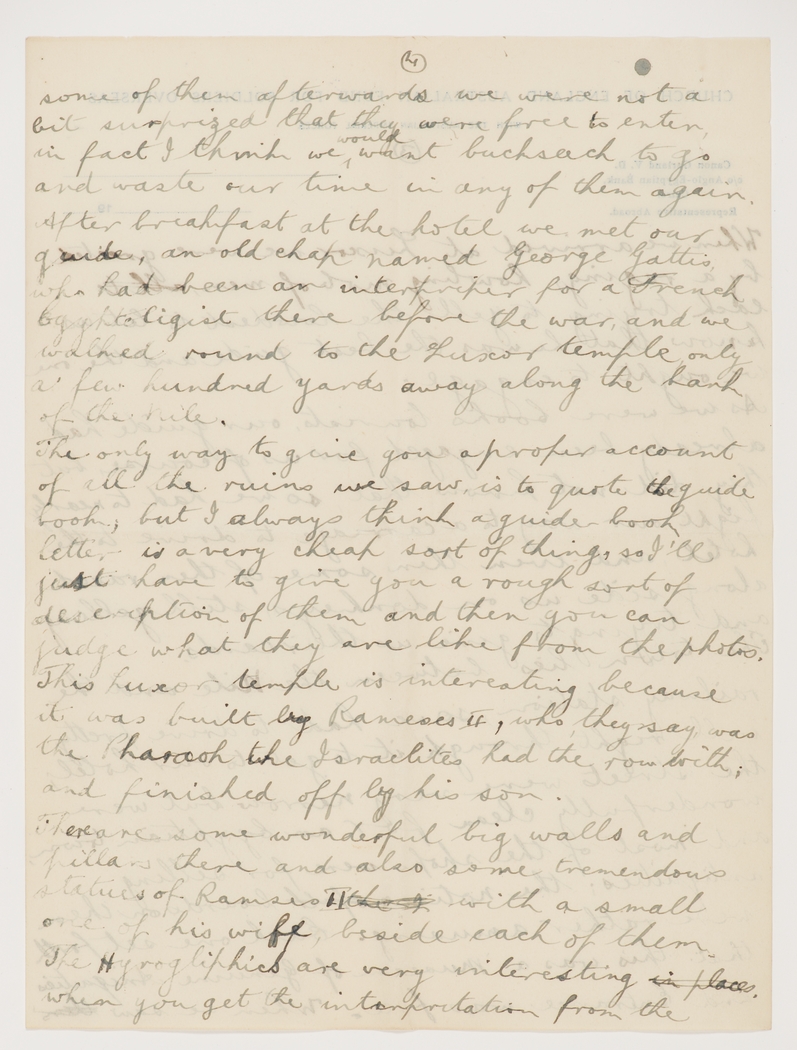 4
some of them afterwards we were not a
bit surprized that they were free to enter,
would
in fact I think we, want buckseech to go
and waste our time in any of them again.
After breakfast at the hotel we met our
guide, an old chap named George Gattis,
who had been an interpriper for a French
Egyptoligist there before the war, and we
walked round to the Luxor temple only
a few hundred yards away along the bank
of the Nile.
The only way to give you a proper account
of all the ruins we saw, is to quote the guide
book, but I always think a guide-book
letter is a very cheap sort of thing, so I'll
just have to give you a rough sort of
description of them and then you can
judge what they are like from the photos.
This Luxor temple is interesting because
it was built by Rameses II, who, they say, was
the Pharaoh the Israelites had the row with;
and finished off by his son.
There are some wonderful big walls and
pillars there and also some tremendous
statues of Ramses II the with a small
one of his wiff, beside each of them.
The Hyrogliphics are very interesting in places.
when you get the interpritation from the